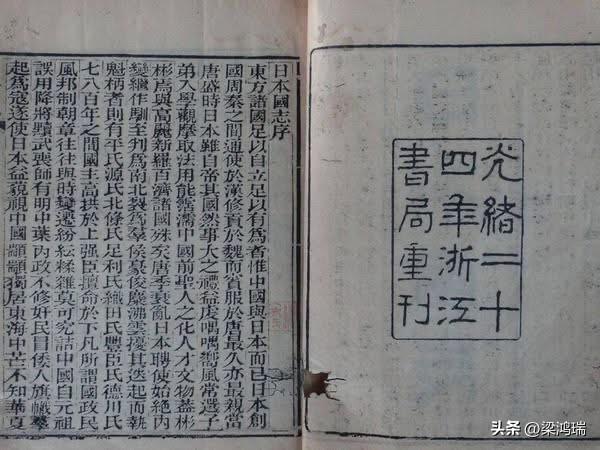 光緒二十
四年浙江
書局重刊
日本國志序
東方諸國足以自立足以有爲者惟中國與日本而已日本創
國周秦之間通使於漢修貢於魏而賓服於唐最久亦最親當
唐盛時日本雖自帝其國然事大之禮益虔喁喁嚮風常選子
弟入學觀摩取法用能霑濡中國前聖人之化人才文物盎彬
彬焉與高麗新羅百濟諸國殊矣唐季衰亂日本聘使始絕內
變繼作馴至判爲南北裂爲羣侯豪俊麋沸雲擾其迭起而執
魁柄者則有平氏源氏北條氏足利氏織田氏豐臣氏德川氏
七八百年之間國主高拱於上强臣擅命於下凡所謂國政民
風邦制朝章往往與時變遷紛紜糅雜莫可究詰中國自元祖
誤用降將黷武喪師有明中葉內政不修奸民冒倭人旗幟羣
起爲寇遂使日本益藐視中國顓顓獨居東海中芒不知華夏
头条 @梁鸿瑞